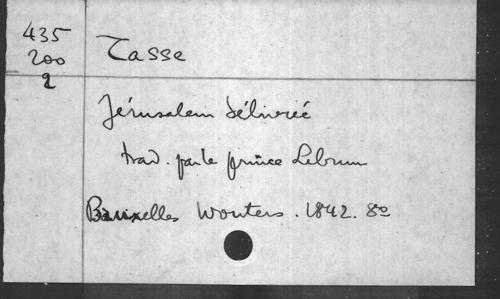 435
200
2
Tasse
Jérusalem délivrée
trad. par le prince Lebrun
Bruxelles Wouters. 1842. 8º